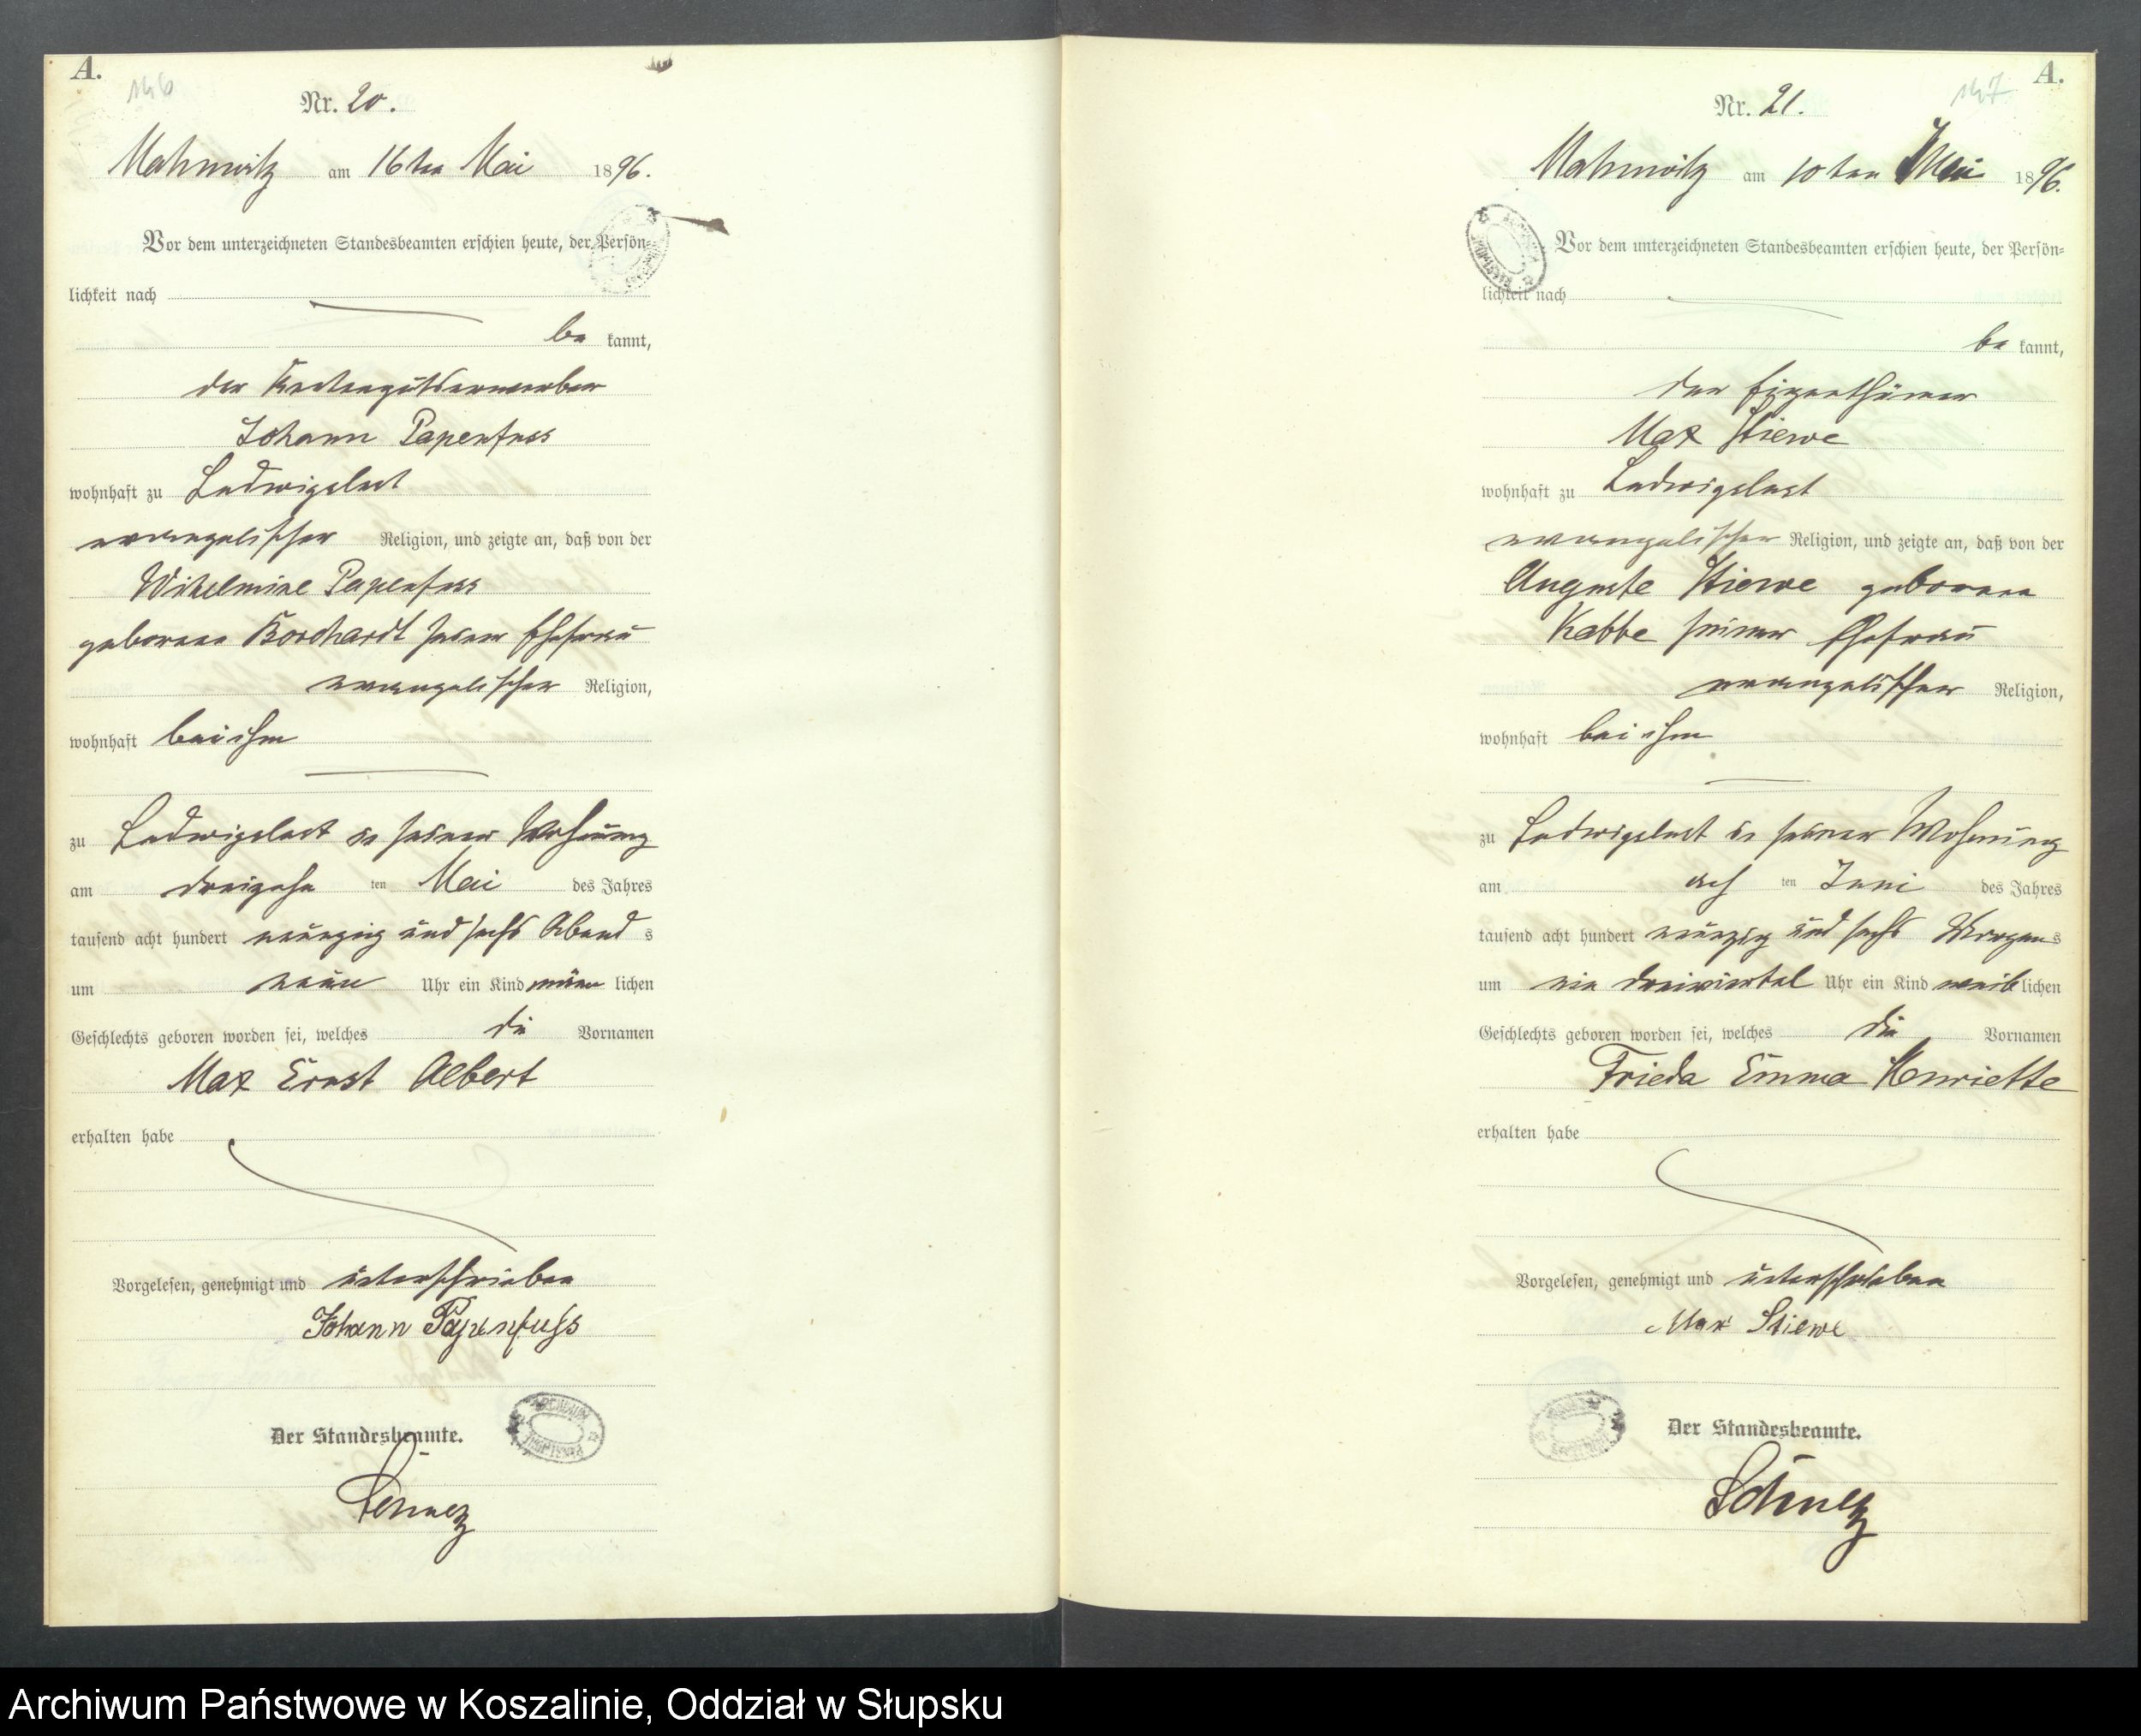 A.
146
Nr. 20.
Mahnwitz am 16ten Mai 1896.
Vor dem unterzeichneten Standesbeamten erschien heute, der Persön-
lichkeit nach
be kannt,
der Rentengutserwerber
Johann Papenfuss
wohnhaft zu Ludwigslust
evangelischer Religion, und zeigte an, daß von der
Wihelmine Papenfuss
geborene Borchardt seiner Ehefrau
evangelischer Religion,
wohnhaft bei ihm
zu Ludwigslust in seiner Wohnung
am dreizehn ten Mai des Jahres
tausend acht hundert neunzig und sechs Abend s
um neun Uhr ein Kind männ lichen
Geschlechts geboren worden sei, welches die Vornamen
Max Ernst Albert
erhalten habe
Vorgelesen, genehmigt und unterschrieben
Johann Papenfuss
Der Standesbeamte.
A.
147
Nr. 21.
Mahnwitz am 10ten 1896.
Vor dem unterzeichneten Standesbeamten erschien heute, der Persön-
lichkeit nach
be kannt,
der Eigenthümer
Max Stiewe
wohnhaft zu Ludwigslust
evangelischer Religion, und zeigte an, daß von der
Auguste Stiewe geborene
Kabbe seiner Ehefrau
evangelischer Religion,
wohnhaft bei ihm
zu Ludwigslust in seiner Wohnung
am ach ten Juni des Jahres
tausend acht hundert neunzig und sechs Morgens
um ein dreiviertel Uhr ein Kind weib lichen
Geschlechts geboren worden sei, welches die Vornamen
Frieda Emma Henriette
erhalten habe
Vorgelesen, genehmigt und unterschrieben
Max Stiewe
Der Standesbeamte.
Archiwum Państwowe w Koszalinie, Oddział w Słupsku